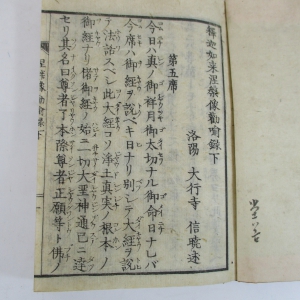 釋迦如来涅槃像勸喩録下
洛陽 大行寺 信暁述
第五席
今日ハ真ノ御祥月御太切ナル御命日ナレバ
今席ハ御経ヲ説ベキ日ナリ別シテ大経ヲ説
テ法話スベシ此大経コソ浄土真実ノ根本ノ
御経ナリ偖御経ノ始ニ一切大聖神通已ニ達
セリ其名曰尊者了本際尊者正願等ト佛ノ